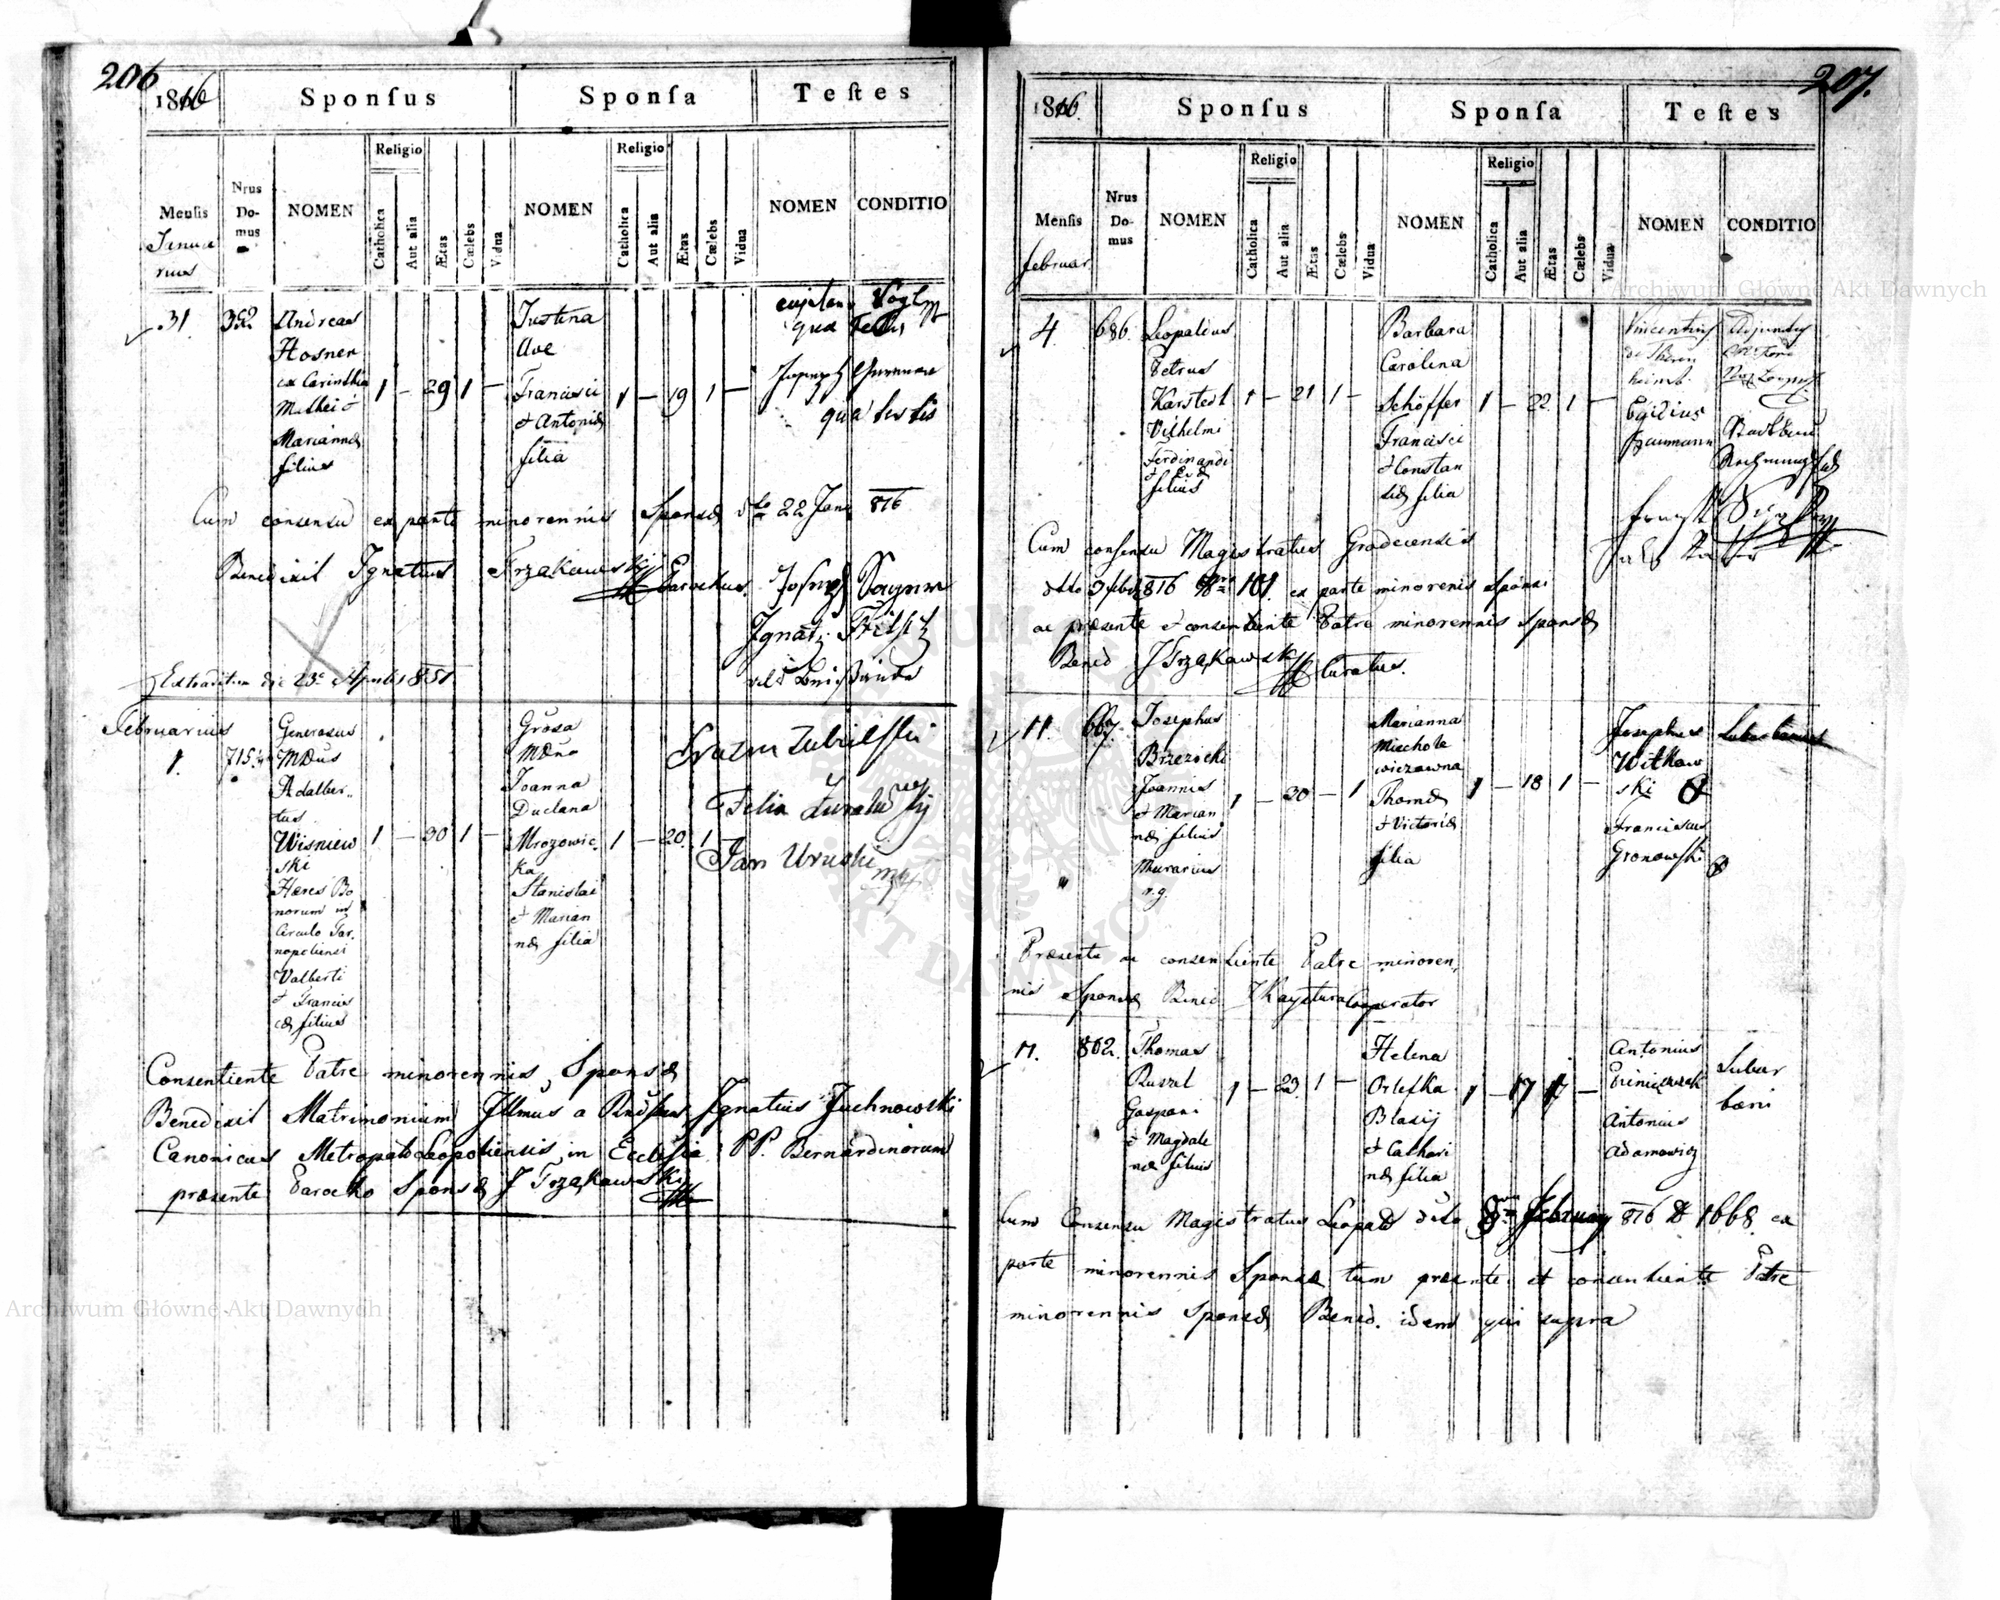 206
1816
Sponſus
Sponſa
Teſtes
Religio
Religio
Menſis
Nrus
Do-
mus
NOMEN
Catholica
Aut alia
Ætas
Cælebs
Vidua
NOMEN
Catholica
Aut alia
Ætas
Cælebs
Vidua
NOMEN
CONDITIO
Janua
rius
31
Andreas
Hosner
ex Carinthia
Mathei &
Mariannæ
filius
1 — 29 1 —
Justina
Ave
Francisci
& Antoniæ
filia
1 — 19 1 —
qua testis
Cum consensu ex parte minorennis Sponsæ dto 22 Jan 816
Benedixit Ignatius Trząkawski Parochus.
Extraditum die 23 Aprilis 851
Februarius
1.
715
Generosus
MDnus
Adalber-
tus
Wisniew
ski
Hæres Bo
norum in
Circulo Tar.
nopoliensi
Valberti
& Francis
cæ filius
1 — 30 1 —
Grosa
MDna
Joanna
Duclana
Mrozowic.
ka
Stanislai
& Marian
næ filia
1 — 20 1 —
Jan Uruski
Consentiente Patre minorennis Sponsæ
Benedixit Matrimonium Illmus a Rndssmus Ignatius Juchnowski
Canonicus Metropolit Leopoliensis in Ecclesia PP. Bernardinorum
præsente Parocho Sponsæ J Trząkawski
207.
1816.
Sponſus
Sponſa
Teſtes
Religio
Religio
Menſis
Nrus
Do-
mus
NOMEN
Catholica
Aut alia
Ætas
Cælebs
Vidua
NOMEN
Catholica
Aut alia
Ætas
Cælebs
Vidua
NOMEN
CONDITIO
februar
4.
686.
Leopoldus
Petrus
Karstedt
Vilhelmi
Ferdinandi
filius
1 — 21 1 —
Barbara
Carolina
Schöffer
Francisci
& Constan
tiæ filia
1 — 22 1 —
Vincentius
Egidius
Baumann
Cum consensu Magistratus Gradecensis
ddto 3 feb 816 Nro 101. ex parte minorenis Sponsi
ac præsente & consentiente Patre minorennis Sponsæ
Bened J Trząkawski Curatus.
11.
667.
Josephus
Brzezicki
Joannis
& Marian
næ filius
Murarius
1 — 30 — 1
Marianna
Mischole
wiczowna
Thomæ
& Victoriæ
filia
1 — 18 1 —
Josephus
Witkow
ski
Franciscus
Gronowski
Præsente ac consentiente Patre minoren
nis Sponsæ Bened Kaysztura Cooperator
11.
802.
Thomas
Ruszel
Gaspari
& Magdale
næ filius
1 — 23 1 —
Helena
Orlefka
Blasij
& Cathari
næ filia
1 — 17 1 —
Antonius
Antonius
Adamowicz
Subur
bani
Cum Consensu Magistratus Leopold ddto 8 February 816 1668 ex
parte minorennis Sponsæ tum præsente et consentiente Patre
minorennis Sponsæ Bened. idem qui supra
Archiwum Główne Akt Dawnych
Archiwum Główne Akt Dawnych